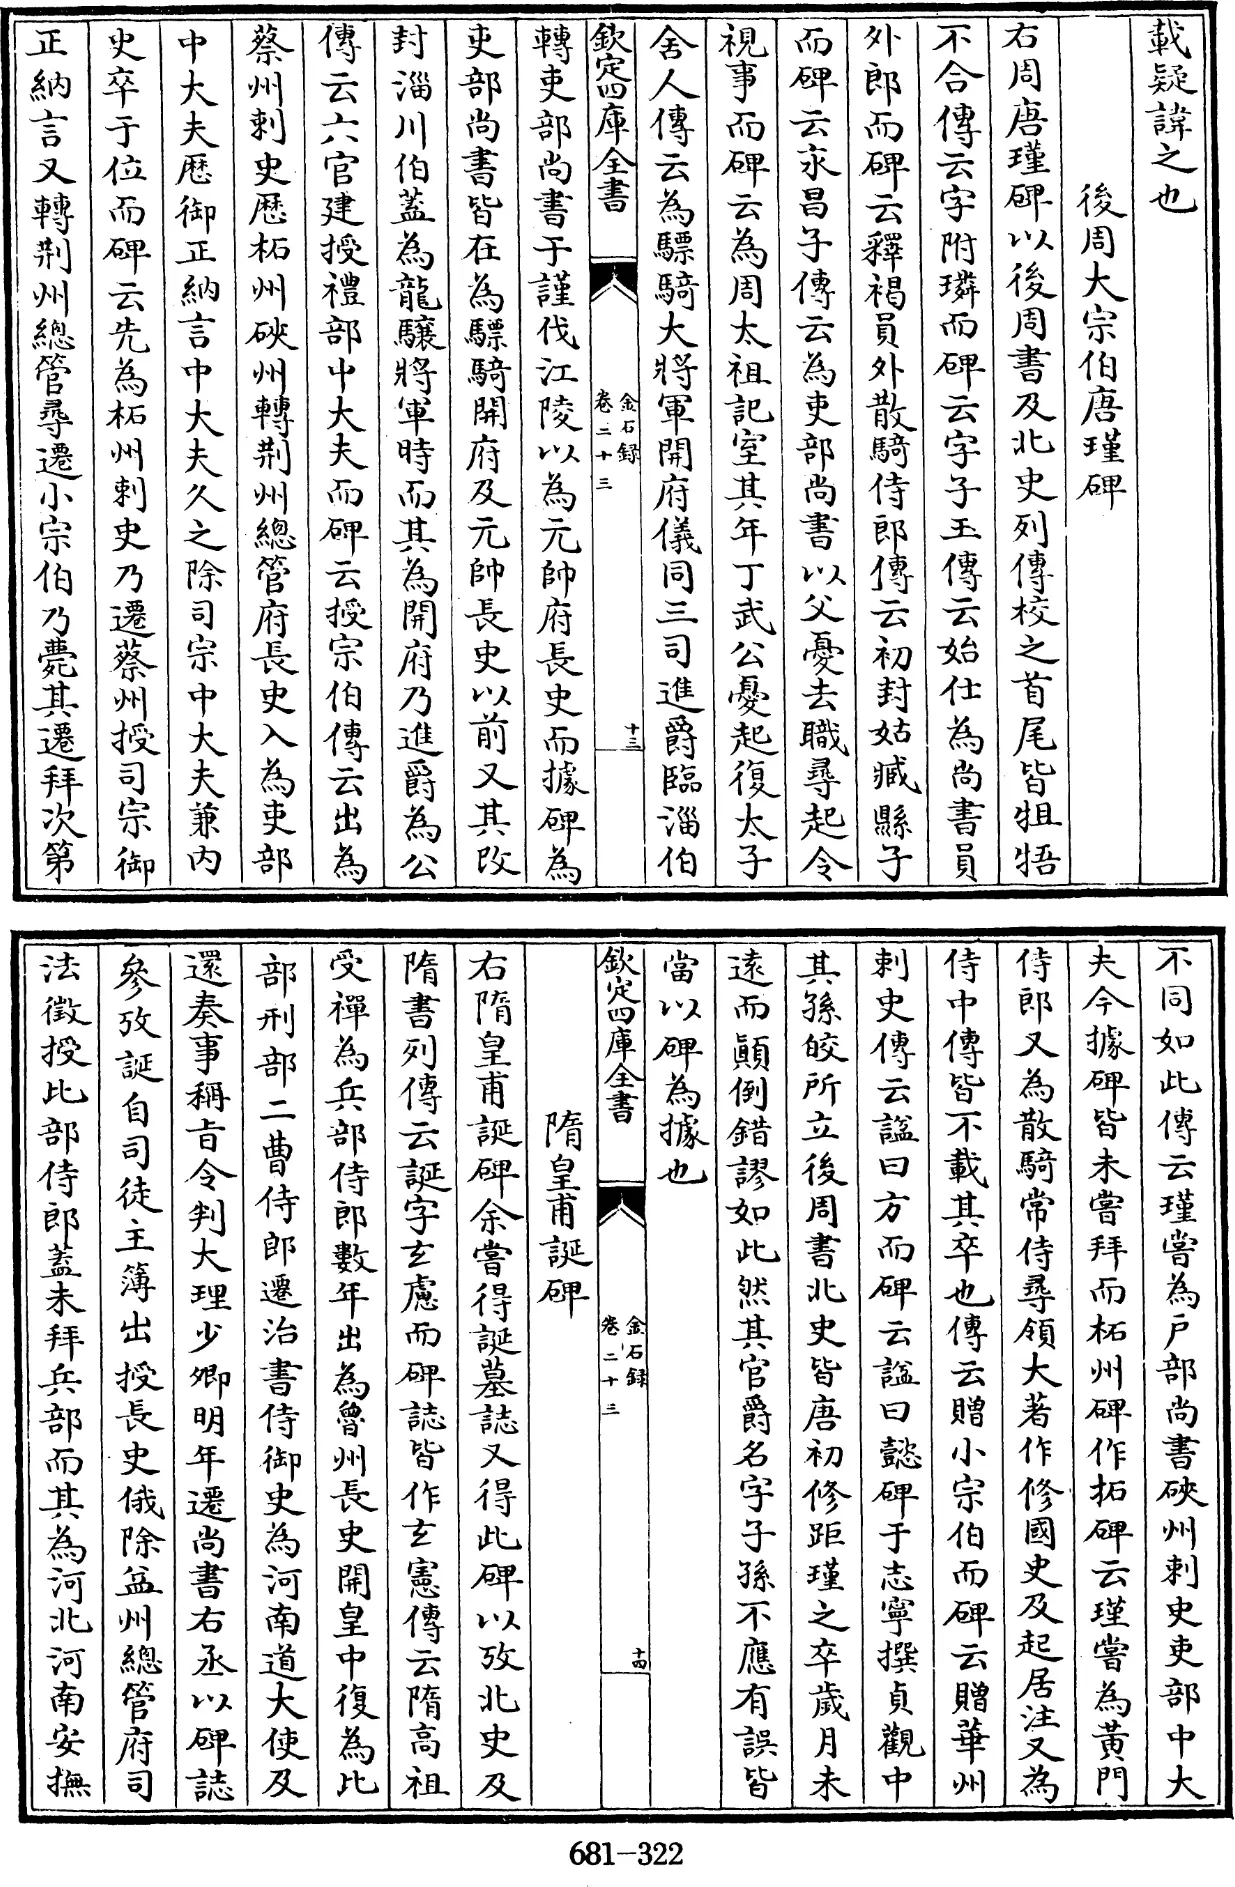 載疑諱之也
後周大宗伯唐瑾碑
右周唐瑾碑以後周書及北史列傳校之首尾皆牴牾
不合傳云字附璘而碑云字子玉傳云始仕為尚書員
外郎而碑云釋褐員外散騎侍郎傳云初封姑臧縣子
而碑云永昌子傳云為吏部尚書以父憂去職尋起令
視事而碑云為周太祖記室其年丁武公憂起復太子
舍人傳云為驃騎大將軍開府儀同三司進爵臨淄伯
欽定四庫全書
金石録
卷二十三
十三
轉吏部尚書于謹伐江陵以為元帥府長史而據碑為
吏部尚書皆在為驃騎開府及元帥長史以前又其改
封淄川伯蓋為龍驤將軍時而其為開府乃進爵為公
傳云六官建授禮部中大夫而碑云授宗伯傳云出為
蔡州刺史歷柘州硤州轉荆州總管府長史入為吏部
中大夫歷御正納言中大夫久之除司宗中大夫兼内
史卒于位而碑云先為柘州刺史乃遷蔡州授司宗御
正納言又轉荆州總管尋遷小宗伯乃薨其遷拜次第
不同如此傳云瑾嘗為戶部尚書硤州刺史吏部中大
夫今據碑皆未嘗拜而柘州碑作拓碑云瑾嘗為黃門
侍郎又為散騎常侍尋領大著作修國史及起居注又為
侍中傳皆不載其卒也傳云贈小宗伯而碑云贈華州
刺史傳云諡曰方而碑云諡曰懿碑于志寧撰貞觀中
其孫皎所立後周書北史皆唐初修距瑾之卒歲月未
遠而顛倒錯謬如此然其官爵名字子孫不應有誤皆
當以碑為據也
欽定四庫全書
金石録
卷二十三
十四
隋皇甫誕碑
右隋皇甫誕碑余嘗得誕墓誌又得此碑以攷北史及
隋書列傳云誕字玄慮而碑誌皆作玄憲傳云隋高祖
受禪為兵部侍郎數年出為魯州長史開皇中復為比
部刑部二曹侍郎遷治書侍御史為河南道大使及
還奏事稱旨令判大理少卿明年遷尚書右丞以碑誌
參攷誕自司徒主簿出授長史俄除益州總管府司
法徵授比部侍郎蓋未拜兵部而其為河北河南安撫
681-322